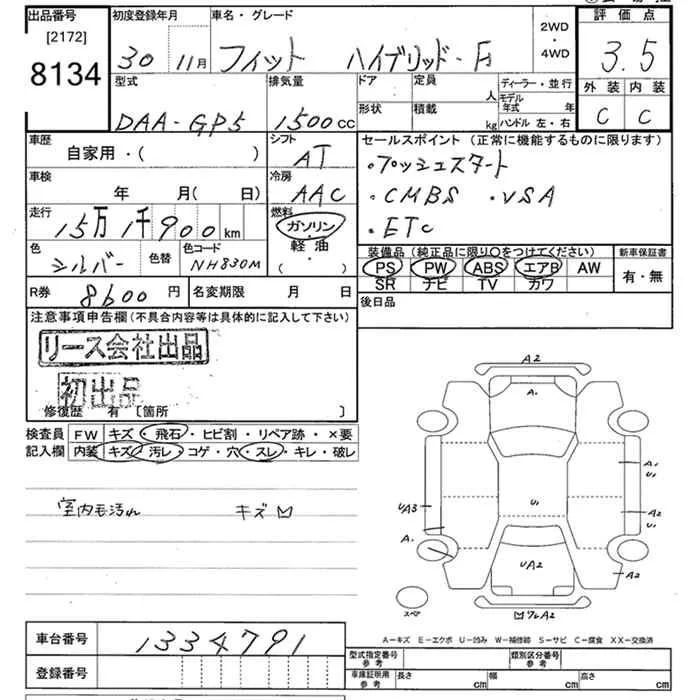 出品番号
[2172]
8134
初度登録年月
30 11月
車名・グレード
フィット ハイブリッド・F
2WD
・
4WD
評価点
3.5
外装 内装
C C
型式
DAA-GP5
排気量
1500cc
ドア 定員 人
形状 積載 kg
ディーラー・並行
モデル年式 年
ハンドル 左・右
車歴
自家用・( )
シフト
AT
セールスポイント(正常に機能するものに限ります)
・プッシュスタート
・CMBS ・VSA
・ETC
車検
年 月( 日)
冷房
AAC
走行
15万1千900km
燃料
ガソリン
軽油
( )
色
シルバー
色替
色コード
NH830M
装備品(純正品に限り○をつけてください)
PS PW ABS エアB AW
SR ナビ TV カワ
新車保証書
有・無
R券 8600円
名変期限 月 日
後日品
注意事項申告欄(不具合内容等は具体的に記入して下さい)
リース会社出品
初出品
修復歴 有 〔箇所 〕
検査員記入欄
FW キズ・飛石・ヒビ割・リペア跡・×要
内装 キズ・汚レ・コゲ・穴・スレ・キレ・破レ
室内毛汚れ キズM
A2
A1
A1
U1
UA3
U1
A2
U1
A1
UA2
A2
スペア
A−キズ E−エクボ U−凹み W−補修跡 S−サビ C−腐食 XX−交換済
車台番号 1334791
登録番号
型式指定番号
参考
類別区分番号
参考
車庫証明用
参考
長さ cm 幅 cm 高さ cm